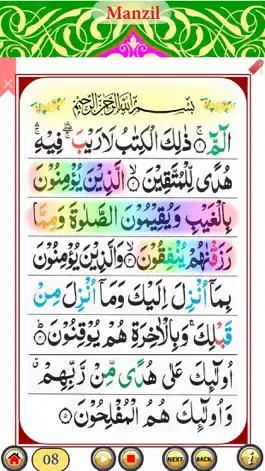 Manzil
بِسْمِ اللهِ الرَّحْمٰنِ الرَّحِيْمِ
الٓمّٓ ۚ ذٰلِكَ الْكِتٰبُ لَا رَيْبَ ۛ فِيْهِ ۛ
هُدًى لِّلْمُتَّقِيْنَ ۙ الَّذِيْنَ يُؤْمِنُوْنَ
بِالْغَيْبِ وَيُقِيْمُوْنَ الصَّلٰوةَ وَمِمَّا
رَزَقْنٰهُمْ يُنْفِقُوْنَ ۙ وَالَّذِيْنَ يُؤْمِنُوْنَ
بِمَآ اُنْزِلَ اِلَيْكَ وَمَآ اُنْزِلَ مِنْ
قَبْلِكَ ۚ وَبِالْاٰخِرَةِ هُمْ يُوْقِنُوْنَ ؕ
اُولٰٓئِكَ عَلٰى هُدًى مِّنْ رَّبِّهِمْ ۗ
وَاُولٰٓئِكَ هُمُ الْمُفْلِحُوْنَ
08
NEXT BACK i